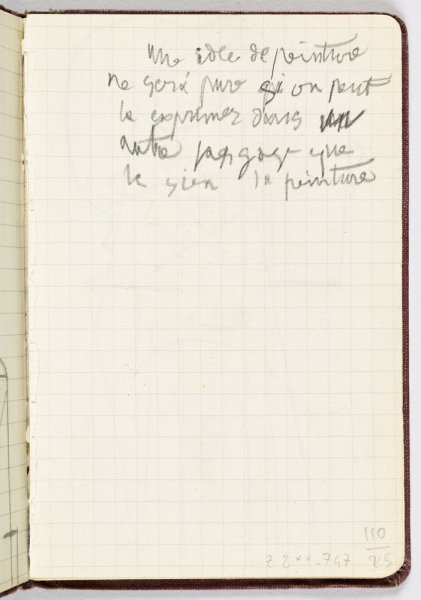 une idee de peinture
ne sera pure si on peut
le exprimer dans un
autre langage que
le sien la peinture
110
75